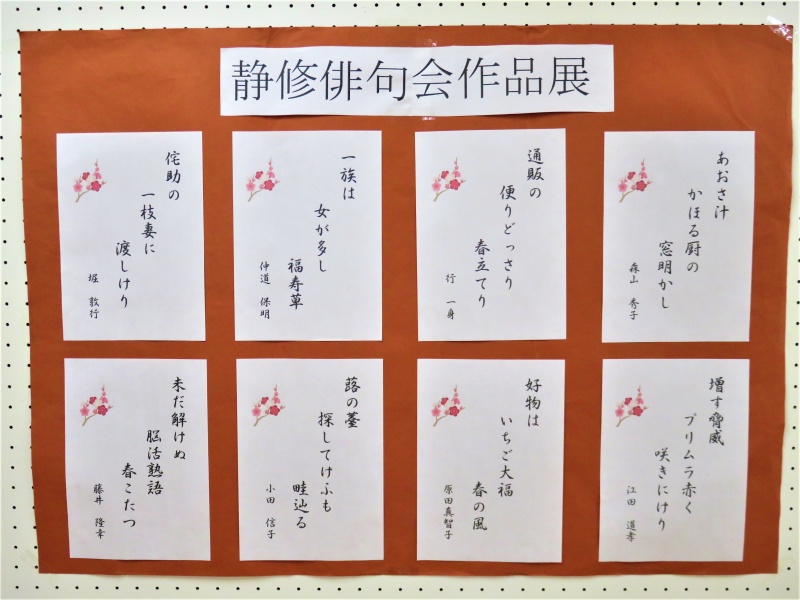 静修俳句会作品展
あおさ汁
かほる厨の
窓明かし
森山 秀子
通販の
便りどっさり
春立てり
行 一身
一族は
女が多し
福寿草
仲道 保明
侘助の
一枝妻に
渡しけり
堀 敦行
増す脅威
プリムラ赤く
咲きにけり
江田 道孝
好物は
いちご大福
春の風
原田真智子
蕗の薹
探してけふも
畦辿る
小田 信子
未だ解けぬ
脳活熟語
春こたつ
藤井 隆幸